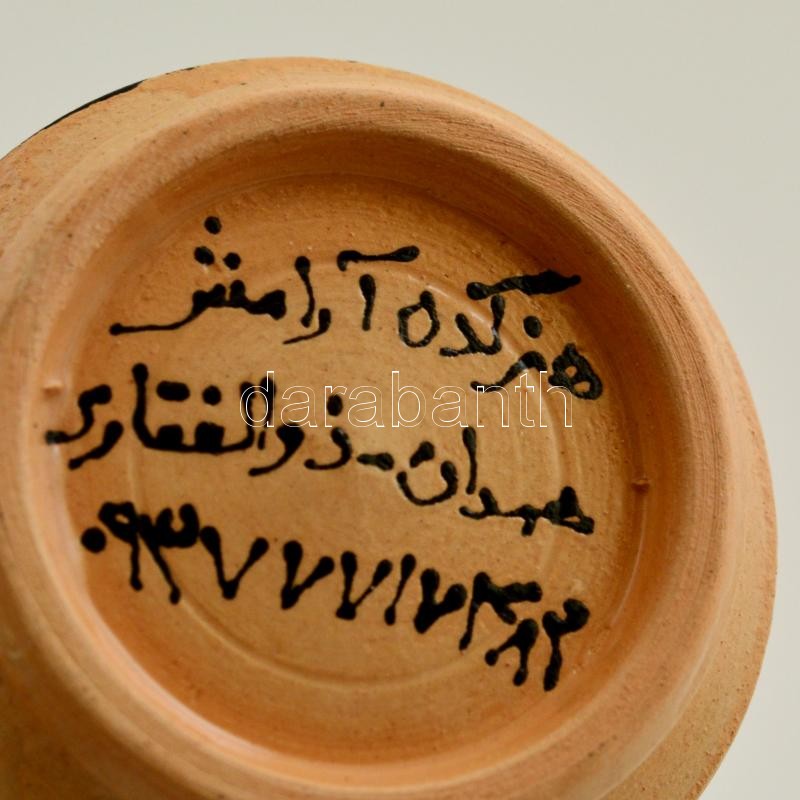 هنرکده آرامش
همدان - ذوالفقاری
۰۹۳۷۷۷۱۷۳۸۲
darabanth